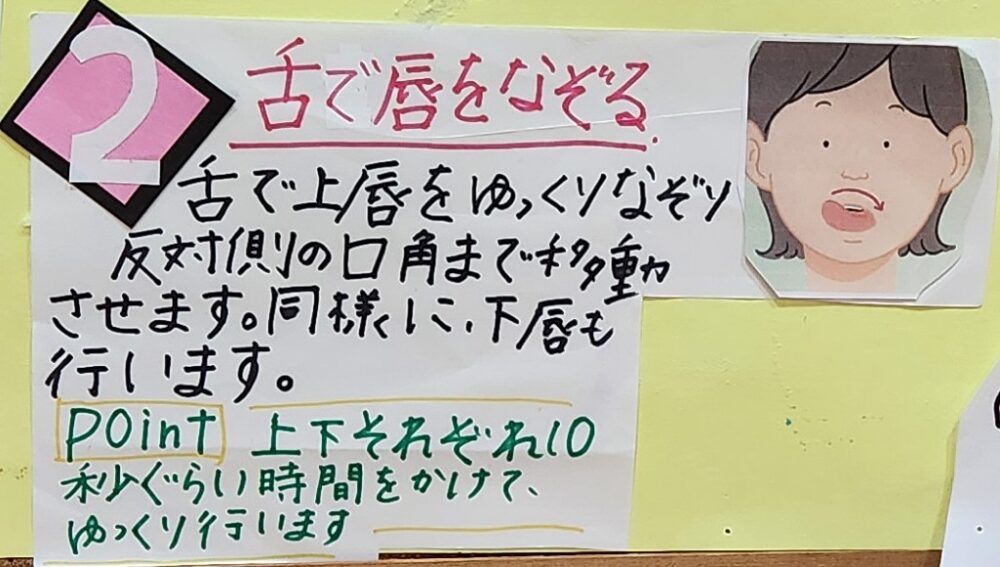 2
舌で唇をなぞる
舌で上唇をゆっくりなぞり
反対側の口角まで移動
させます。同様に、下唇も
行います。
point 上下それぞれ10
秒ぐらい時間をかけて、
ゆっくり行います